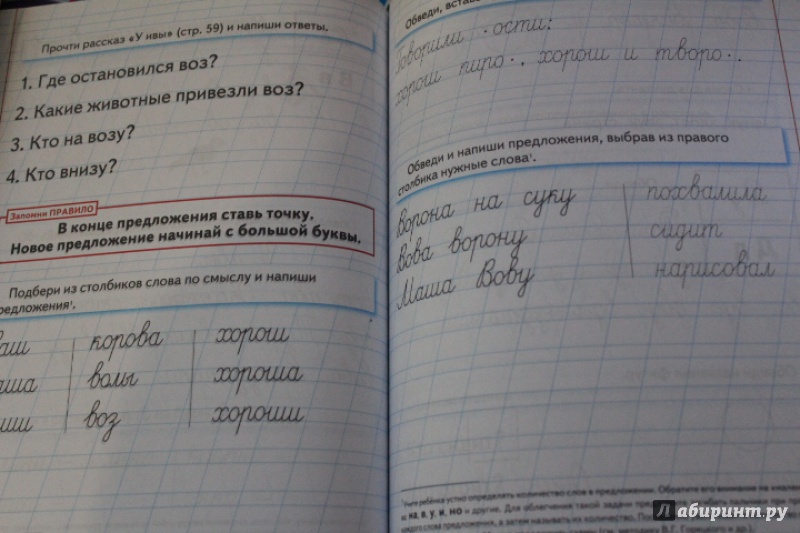 Прочти рассказ «У ивы» (стр. 59) и напиши ответы.
1. Где остановился воз?
2. Какие животные привезли воз?
3. Кто на возу?
4. Кто внизу?
Запомни ПРАВИЛО
В конце предложения ставь точку.
Новое предложение начинай с большой буквы.
Подбери из столбиков слова по смыслу и напиши
редложения¹.
аш корова хорош
аша волы хороша
аши воз хороши
Обведи,
Говорили ·ости:
хорош пиро·, хорош и творо·.
Обведи и напиши предложения, выбрав из правого
столбика нужные слова¹.
Ворона на суку похвалила
Вова ворону сидит
Маша Вову нарисовал
¹Учите ребёнка устно определять количество слов в предложении. Обратите его внимание на
на, в, у, и, но и другие. Для облегчения такой задачи загибать пальчики при
каждого слова предложения, а затем называть их количество.
В.Г. Горецкого и др.).
Лабиринт.ру